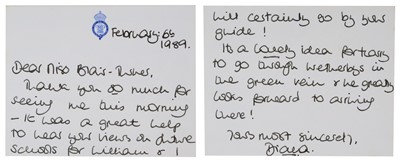 February. 6th
1989.
Dear Miss Blair-Turner,
Thank you so much for
seeing me this morning
- It was a great help
to hear your views on future
schools for William & I
will certainly go by your
guide!
It's a lovely idea for Harry
to go through Wetherbys in
the green vein & he greatly
looks forward to arriving
there!
Yours most sincerely,
Diana.